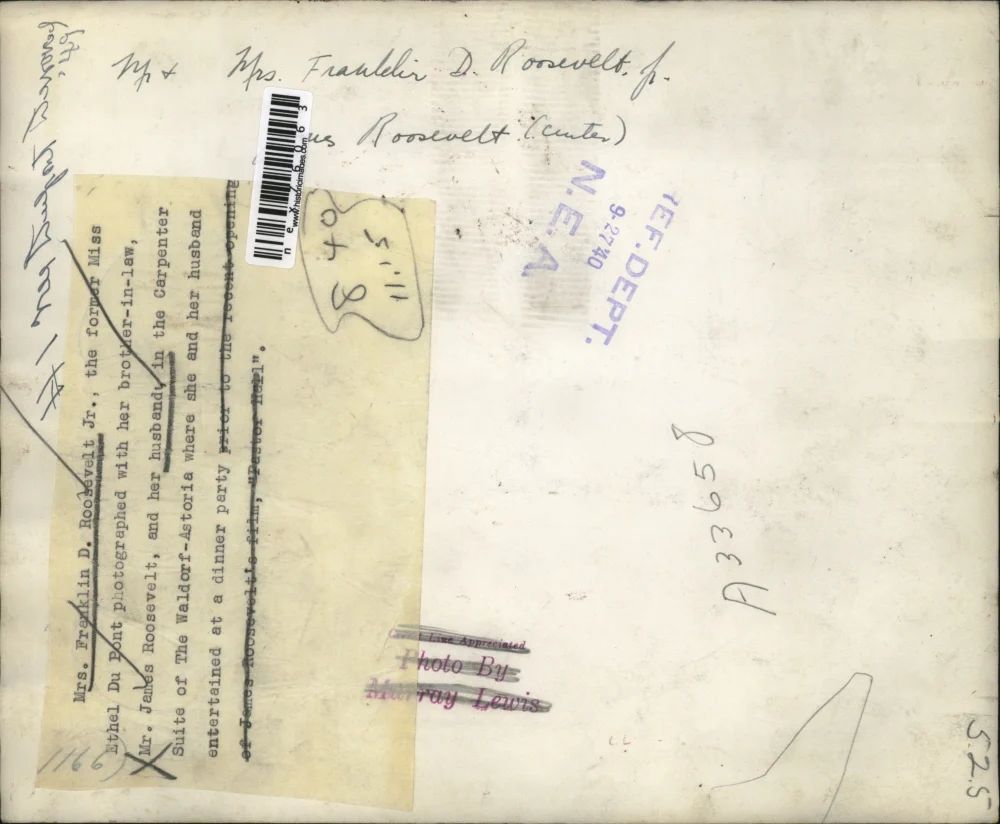 Mr + Mrs. Franklin D. Roosevelt, Jr.
Roosevelt (center)
REF. DEPT.
9-27'40
N. E. A.
Mrs. Franklin D. Roosevelt Jr., the former Miss
Ethel Du Pont photographed with her brother-in-law,
Mr. James Roosevelt, and her husband, in the Carpenter
Suite of The Waldorf-Astoria where she and her husband
entertained at a dinner party prior to the recent opening
of James Roosevelt's film, "Pastor Hall".
8 40
11.15
www.historicimages.com
Credit Line Appreciated
Photo By
Murray Lewis
A33658
525